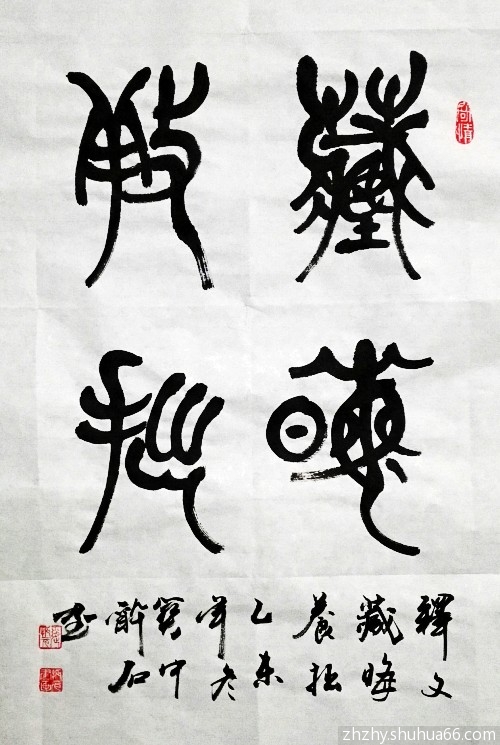 寄情
藏晦
養拙
釋文
藏晦
養拙
乙未
年冬
寶中
醉石
书
zhzhy.shuhua66.com